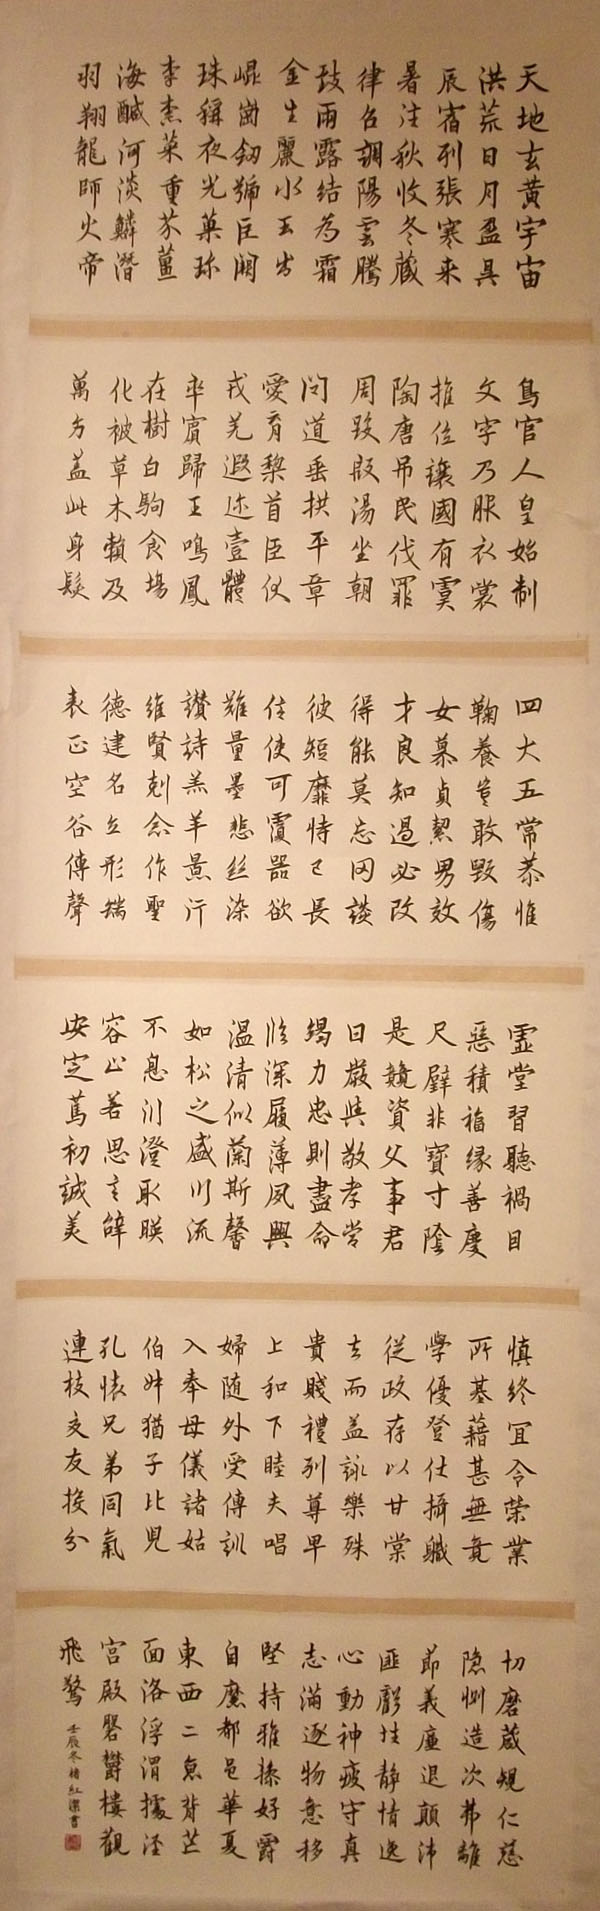 天地玄黃宇宙
洪荒日月盈昃
辰宿列張寒来
暑往秋收冬藏
律召調陽雲騰
致雨露結為霜
金生麗水玉出
崐崗劔號巨闕
珠稱夜光菓珍
李柰菜重芥薑
海醎河淡鱗潛
羽翔龍師火帝
鳥官人皇始制
文字乃服衣裳
推位讓國有虞
陶唐吊民伐罪
周發殷湯坐朝
問道垂拱平章
愛育黎首臣伏
戎羌遐迩壹體
率賓歸王鳴鳳
在樹白駒食場
化被草木賴及
萬方蓋此身髮
四大五常恭惟
鞠養豈敢毀傷
女慕貞絜男效
才良知過必改
得能莫忘罔談
彼短靡恃己長
信使可覆器欲
難量墨悲丝染
讃詩羔羊景行
維賢剋念作聖
德建名立形端
表正空谷傳聲
虛堂習聽禍因
惡積福緣善慶
尺璧非寶寸陰
是競資父事君
曰嚴與敬孝當
竭力忠則盡命
臨深履薄夙興
温凊似蘭斯馨
如松之盛川流
不息川澄取暎
容止若思言辭
安定篤初誠美
慎終宜令榮業
所基藉甚無竟
學優登仕攝職
從政存以甘棠
去而益詠樂殊
貴賤禮別尊卑
上和下睦夫唱
婦随外受傅訓
入奉母儀諸姑
伯叔猶子比兒
孔懐兄弟同氣
連枝交友投分
切磨箴規仁慈
隐惻造次弗離
節義廉退顛沛
匪虧性静情逸
心動神疲守真
志滿逐物意移
堅持雅操好爵
自縻都邑華夏
東西二京背芒
面洛浮渭據泾
宮殿磐鬱樓觀
飛驚
壬辰冬楮红潔書